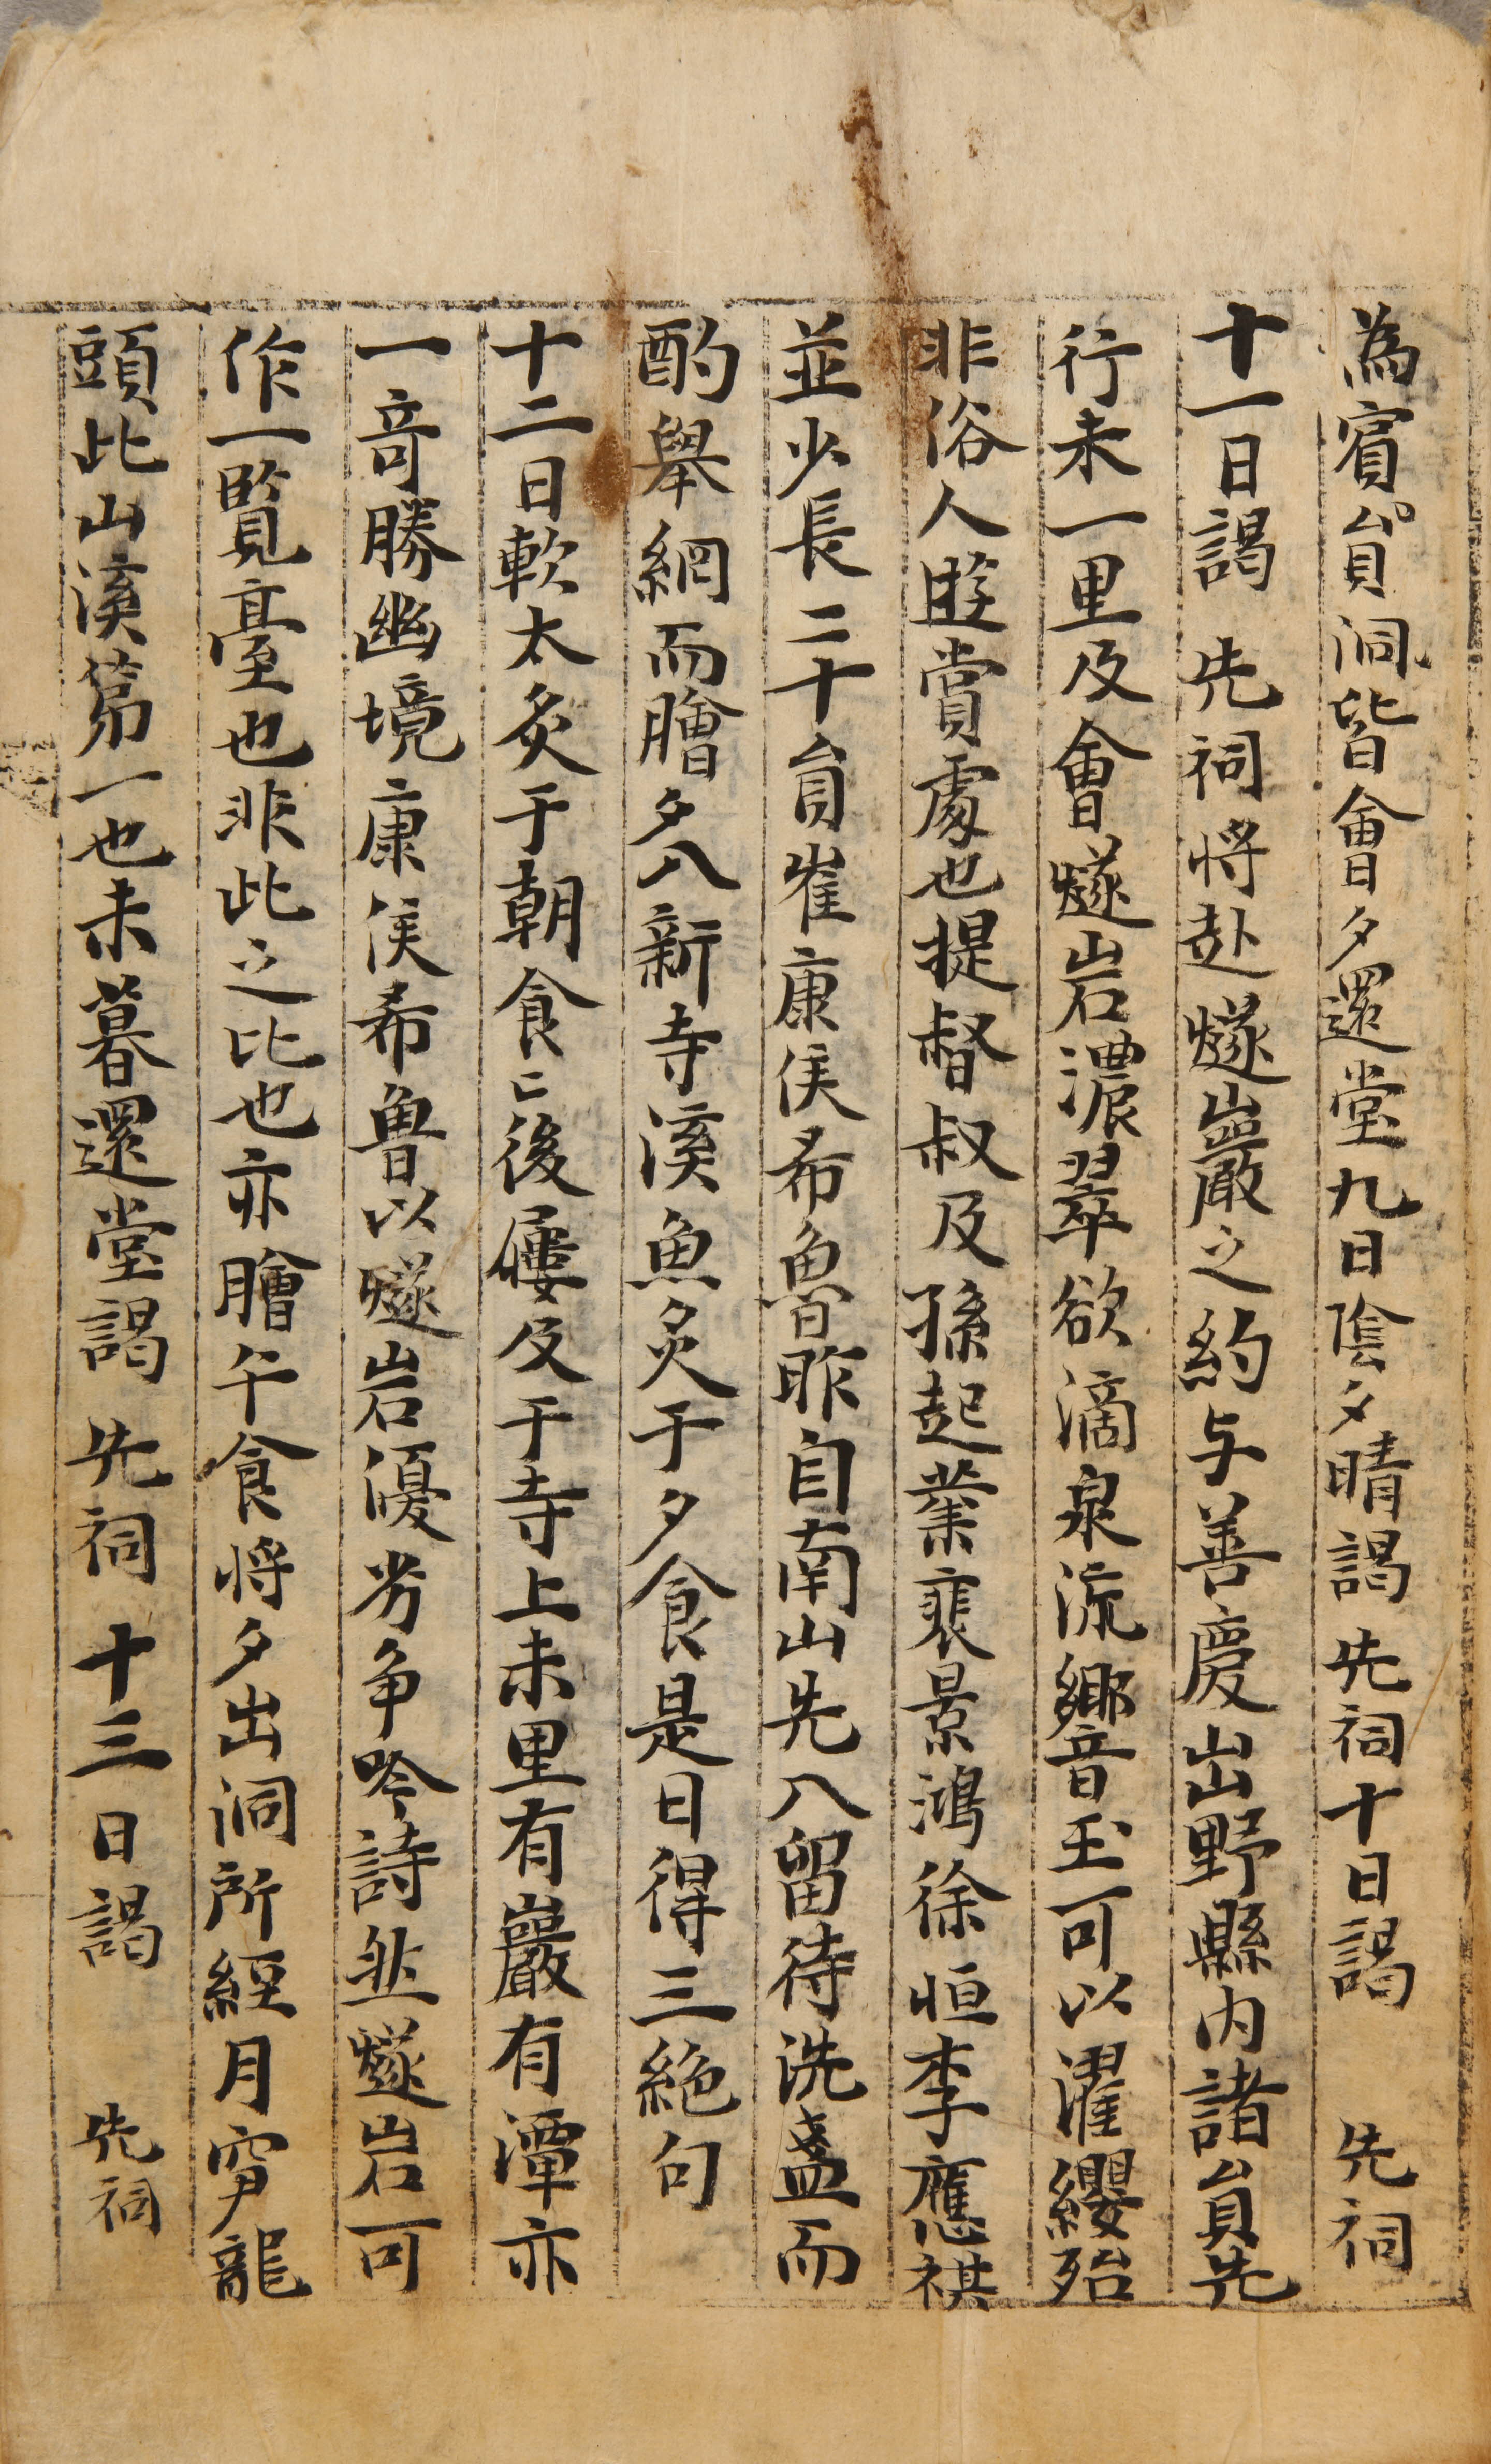 為賓員洞皆會夕還堂九日陰夕晴謁先祠十日謁 先祠
十一日謁 先祠将赴燧巖之約与善慶出野縣内諸員先
行未一里及會燧岩濃翠欲滴泉流響玉可以濯纓殆
非俗人遊賞處也提督叔及孫起業裵景鴻徐恒李應祺
並少長二十員崔康侯希魯昨自南山先入留待洗盞而
酌舉網而膾夕入新寺溪魚炙于夕食是日得三絶句
十二日軟太炙于朝食匕後屨及于寺上未里有巖有潭亦
一竒勝幽境康侯希魯以燧岩優劣争吟詩然燧岩可
作一覧臺也非此之比也亦膾午食将夕出洞所經月窂龍
頭此山溪第一也未暮還堂謁 先祠 十三日謁 先祠